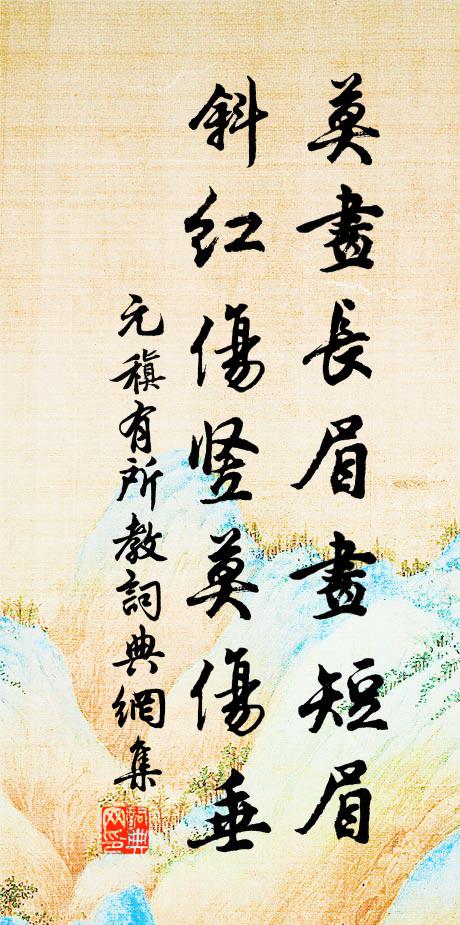 莫畫長眉畫短眉
斜紅傷豎莫傷垂
元稹有所教詞典網集
詞典網印